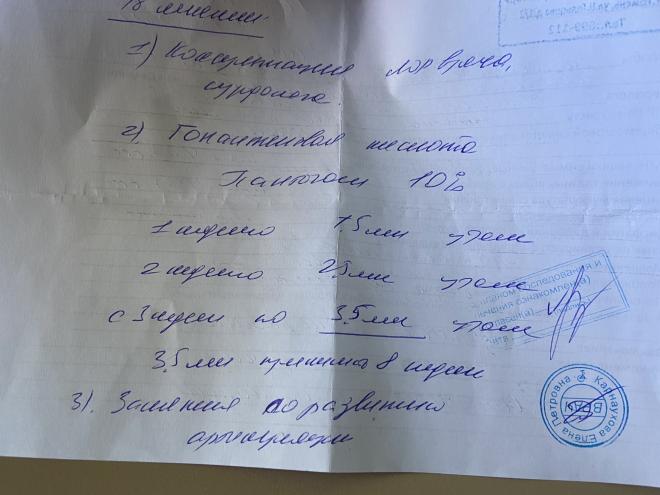 1) Консультация лор врача,
сурдолога.
2). Гопантеновая кислота
Пантогам 10%
1 неделю 1.5 мл утром
2 неделю 2.5 мл утром
с 3 недели по 3.5 мл утром
3.5 мл принимать 8 недель
3). Занятия по развитию
Карнаухова Елена Петровна
ВРАЧ